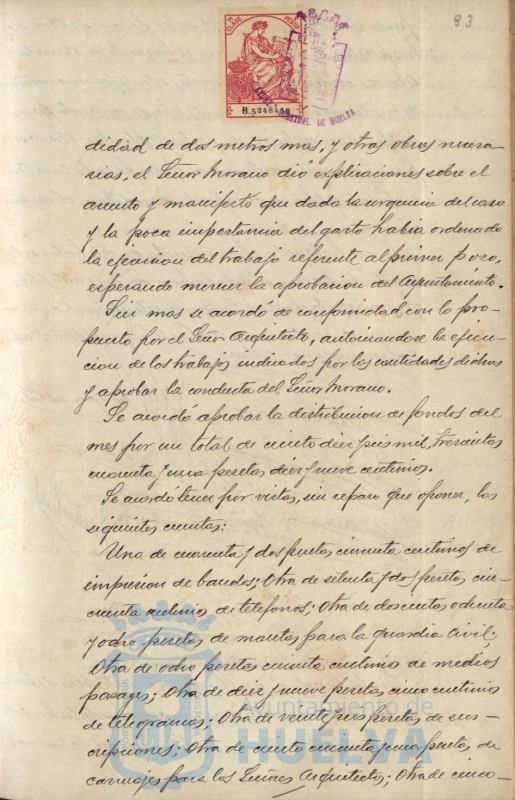 83
CLASE
B.5248458
HUELVA
didad de dos metros mas, y otras obras necesa-
rias, el Señor Morano dió explicaciones sobre el
asunto y manifestó que dada la urgencia del caso
y la poca importancia del gasto habia ordenado
la ejecucion del trabajo referente al primer pozo,
esperando merecer la aprobacion del Ayuntamiento.
Sin mas se acordó de conformidad con lo pro-
puesto por el Señor Arquitecto, autorizandose la ejecu-
cion de los trabajos indicados por las cantidades dichas
y aprobar la conducta del Señor Morano.
Se acordó aprobar la distribucion de fondos del
mes por un total de ciento diez y seis mil, trescientas
cuarenta y una pesetas diez y nueve centimos.
Se acordó tener por vistas, sin reparo que oponer, las
siguientes cuentas:
Una de cuarenta y dos pesetas cincuenta centimos de
impresion de bandos; Otra de setenta y dos pesetas cin-
cuenta centimos de telefonos; Otra de doscientas ochenta
y ocho pesetas de mantas para la guardia civil;
Otra de ocho pesetas cincuenta centimos de medios
pasages; Otra de diez y nueve pesetas cinco centimos
de telegramas; Otra de veinte y seis pesetas de sus-
cripciones; Otra de ciento cincuenta y una pesetas de
carruajes para los Señores Arquitectos; Otra de cinco-
Ayuntamiento de
HUELVA